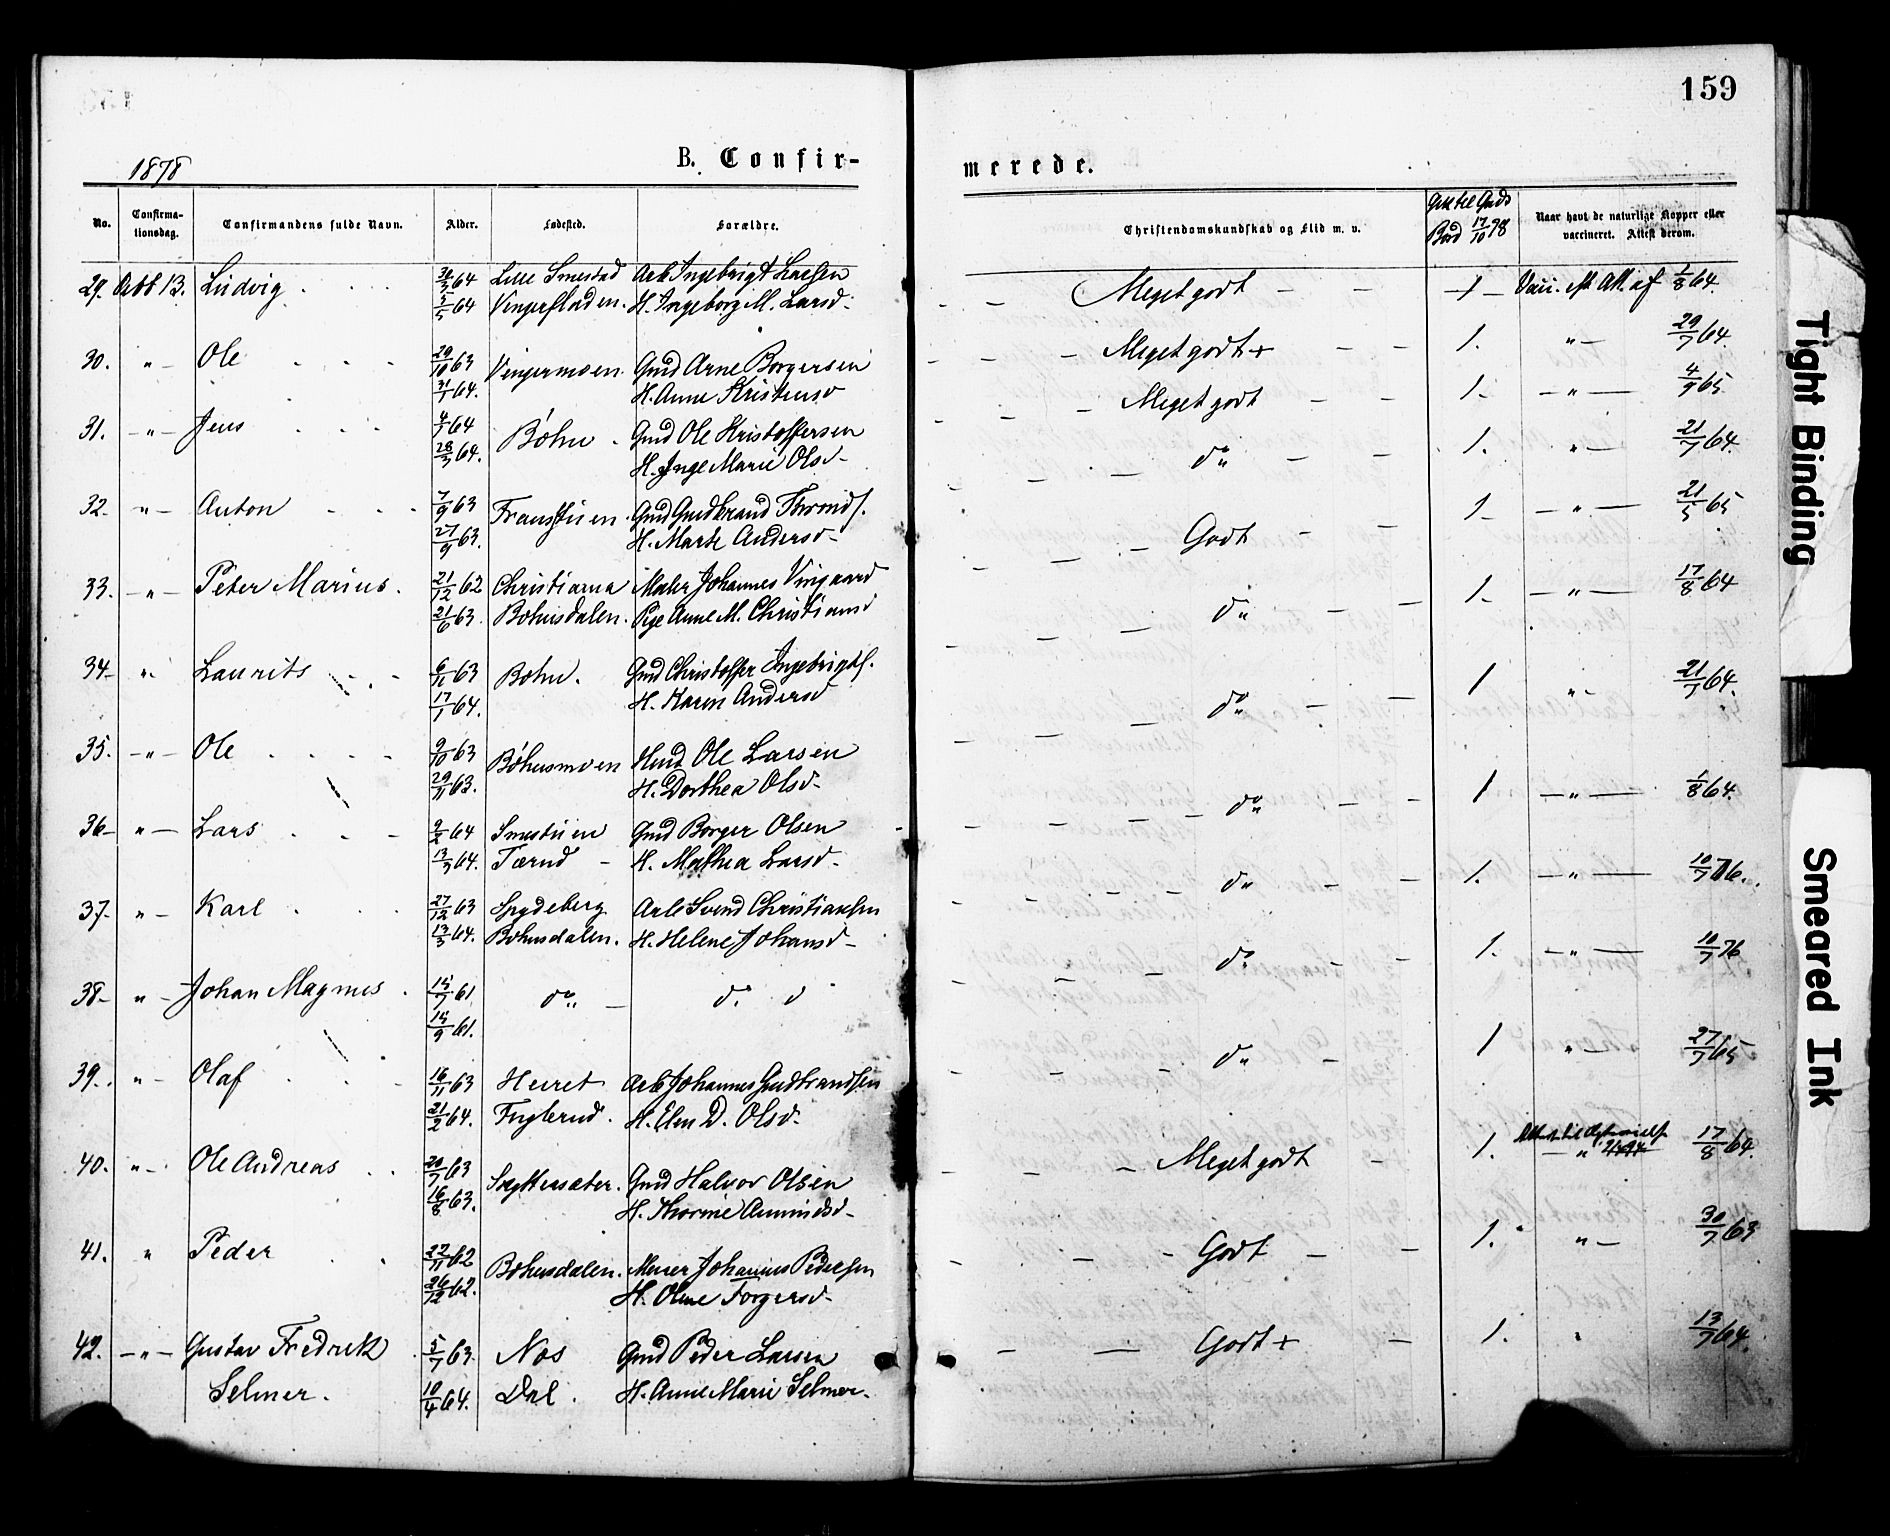 159
1878
B. Confir-
merede.
No.
Confirma-
tionsdag.
Confirmandens fulde Navn.
Alder.
Fødested.
Forældre.
Christendomskundskab og Flid m. v.
Gik til Guds
Bord 17/10 78
Naar havt de naturlige Kopper eller
vaccineret. Attest derom.
29. Octb 13. Ludvig 64 Lille Smestad Arb Ingebrigt Larsen
5/5 64 Vingerfladen. H. Ingeborg M. Larsd.
Meget godt 1 Vacc. eft Att. af 1/8 64.
30. " Ole 29/10 63 Vingermoen Gmd Arne Borgersen
31/1 64. H. Anne Kristensd
Meget godt + 1. " 29/7 64.
31. " Jens 4/7 64 Bøhn Gmd Ole Kristoffersen
28/3 64. H. Inge Marie Olsd
Meget godt 1. " 4/9 65.
32. " Anton 7/9 63 Gmd Gudbrand Thronds.
27/9 63. H. Marte Andersd
do 1. " 21/7 64.
33. " Peter Marius. 21/12 62 Christiania Maler Johannes Vingaard
21/6 63. Bohnsdalen. Pige Anne M. Christiansd
Godt 1 " 21/5 65
34 " Laurits 6/11 63 Bohn. Gmd Christoffer Ingebrigts.
17/1 64. H. Karen Andersd
do 1. " 17/8 64
35. " Ole 9/10 63 Bøhnsmoen Husd Ole Larsen
29/11 63. H. Dorthea Olsd
do 1 " 21/7 64.
36 " Lars 9/2 64 Smestuen Gmd Borger Olsen
13/3 64. Tærud H. Mathea Larsd
do 1 " 1/8 64.
37 " Karl 27/12 63 Spydeberg Arb Svend Christiansen
13/3 64. Bohnsdalen. H. Helene Johansd
do 1. " 10/7 76.
38 " Johan Magnus 15/7 61 do do d
15/9 61.
do 1. " 10/7 76
39. " Olaf 16/11 63 Arb Johannes Gudbrandsen
21/2 64. Fuglerud. H. Elen D. Olsd.
do 1 " 27/7 65
40. " Ole Andreas 20/7 63 Gmd Halvor Olsen
16/8 63. H. Amundsd
Meget godt 1. " 17/8 64.
41. " Peder 22/11 62 Bohnsdalen. Johannes Pedersen
26/12 62. H. Oline Torgersd
Godt 1. " 30/7 63
42. " Gustav Fredrik 5/7 63. Nos Gmd Peder Larsen
Selmer. 10/4 64. Dal. H. Anne Marie Selmer.
Godt + 1. " 13/7 64.
Tight Binding
Smeared Ink